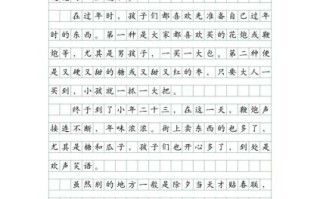 在过年时，孩子们都喜欢先准备自己过年
时的东西。第一种是大家都喜欢买的花炮或鞭
炮等，尤其是男孩子，一买一大包。第二种便
是又硬又甜的糖或又甜又红的枣，只要大人一
买到，小孩就一抓一大把。
终于到了小年二十三，在这一天，鞭炮声
接连不断，年味浓浓。街上卖东西的也多了，
尤其是糖和瓜子。孩子们也开心多了，到处是
欢声笑语。
虽然别的地方一般是除夕当天才贴春联，